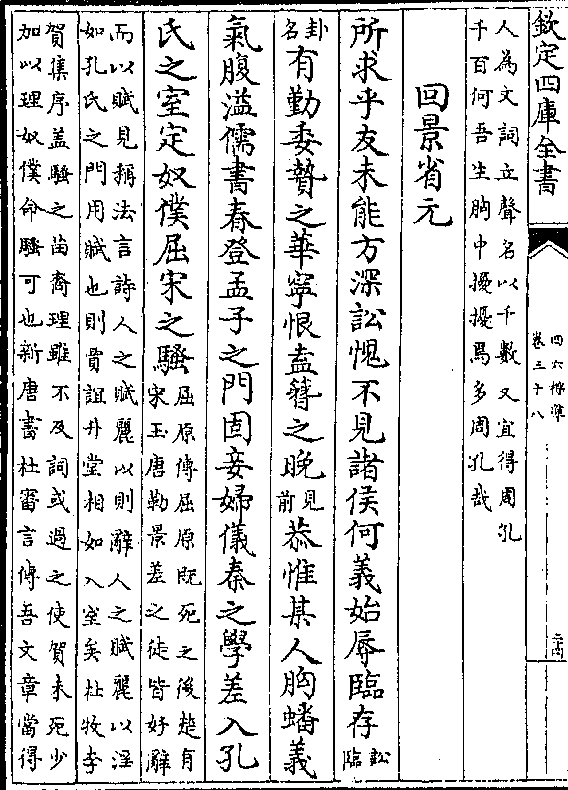 欽定四庫全書
四六標準
卷三十八
人為文詞立聲名以千數又宜得周孔
千百何吾生胸中擾擾焉多周孔哉
回景省元
所求乎友未能方深訟愧不見諸侯何義始辱臨存訟臨
卦名有勤委贄之華寧恨盍簪之晚見前恭惟某人胸蟠義
氣腹溢儒書春登孟子之門固妾婦儀秦之學差入孔
氏之室定奴僕屈宋之騷屈原傳屈原既死之後楚有
宋玉唐勒景差之徒皆好辭
而以賦見稱法言詩人之賦麗以則辭人之賦麗以淫
如孔氏之門用賦也則賈誼升堂相如入室矣杜牧李
賀集序蓋騷之苗裔理雖不及詞或過之使賀未死少
加以理奴僕命騷可也新唐書杜審言傳吾文章當得